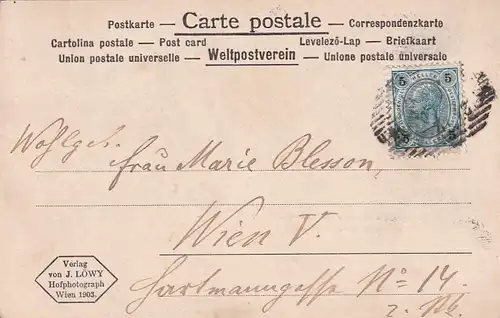 Carte postale
Postkarte — — Correspondenzkarte
Cartolina postale — Post card Levelező-Lap — Briefkaart
Union postale universelle — Weltpostverein — Unione postale universale
5 HELLER 5
Wohlgeb.
Frau Marie Blesson,
Wien V.
Hartmanngasse No 14.
Verlag
von J. LÖWY
Hofphotograph
Wien 1903.